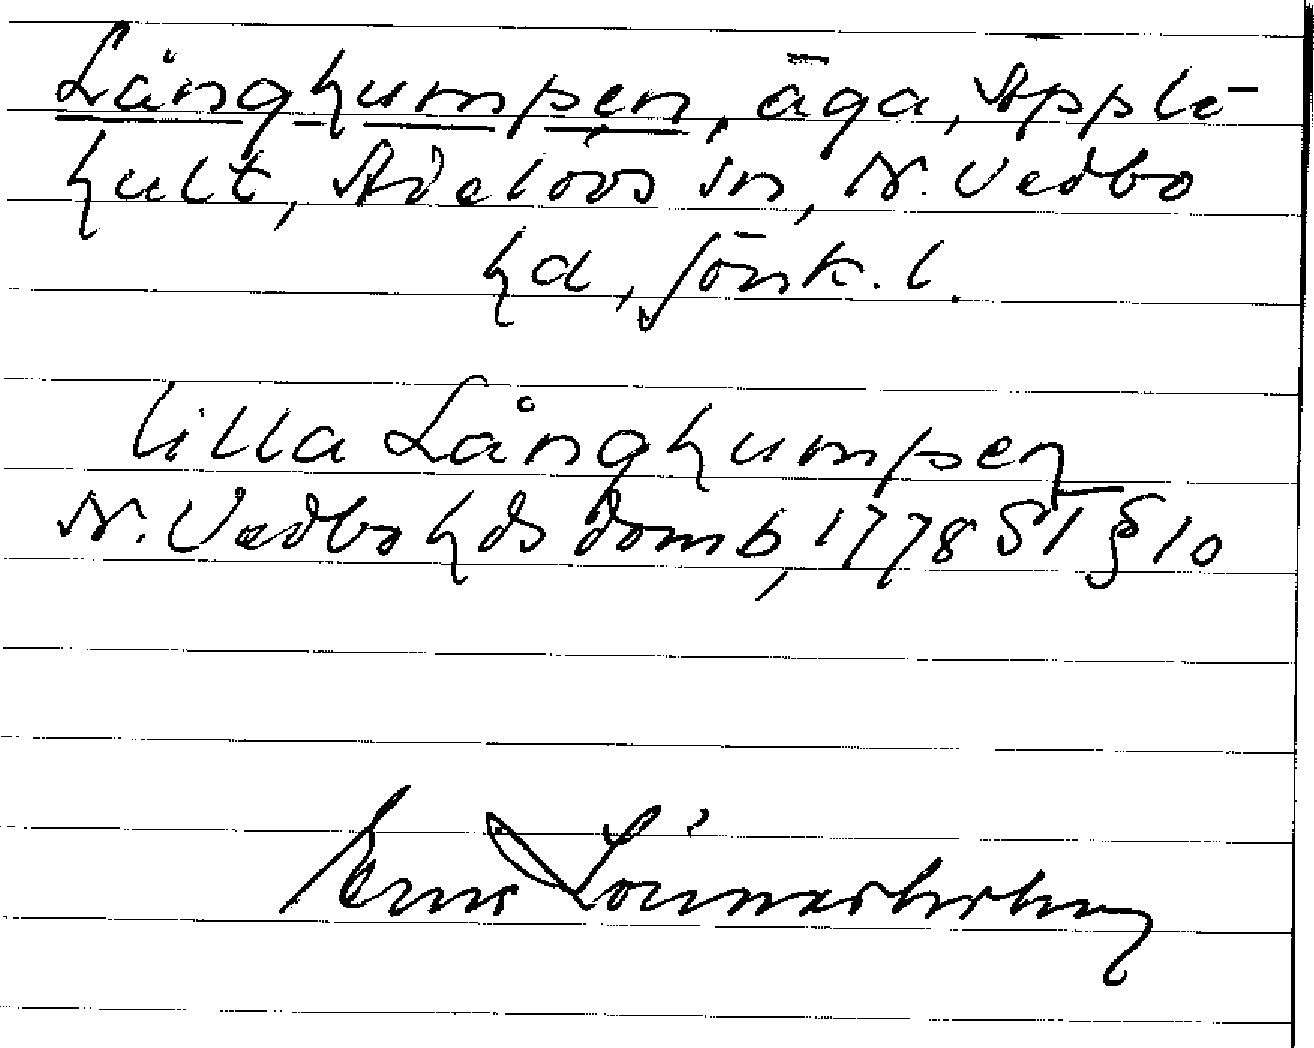 Långhumpen, äga, Äpple-
hult, Adelövs sn, N. Vedbo
hd, Jönk. l.
lilla Långhumpen
N. Vedbo hds domb, 1778 ST § 10